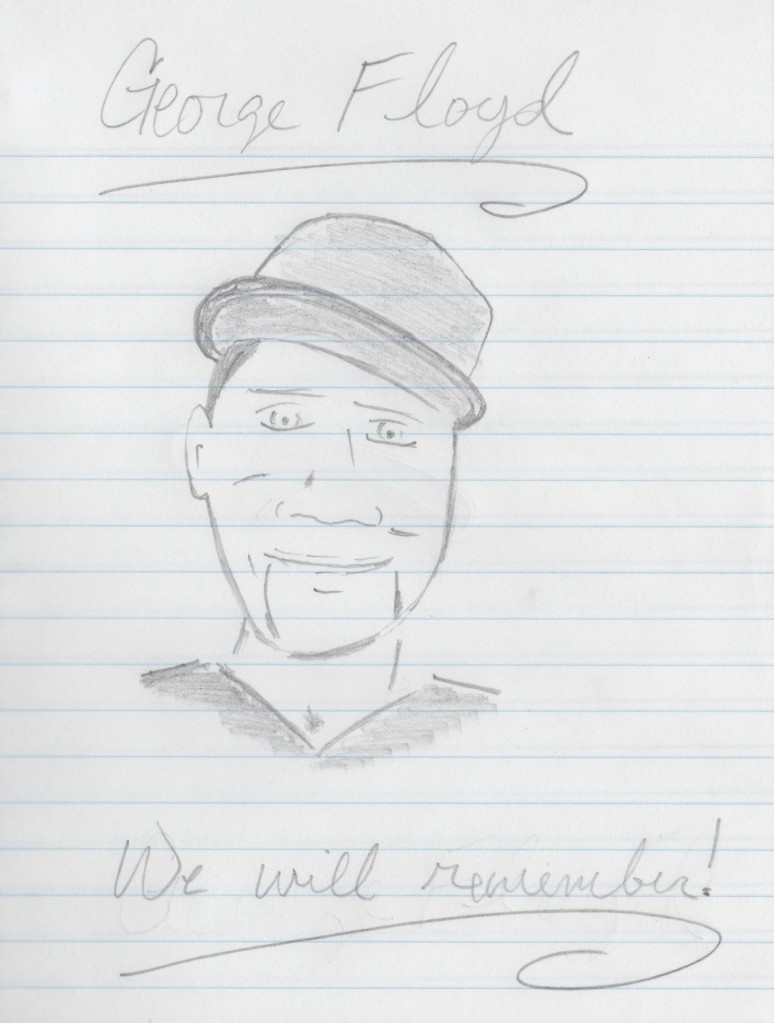 George Floyd
We will remember!